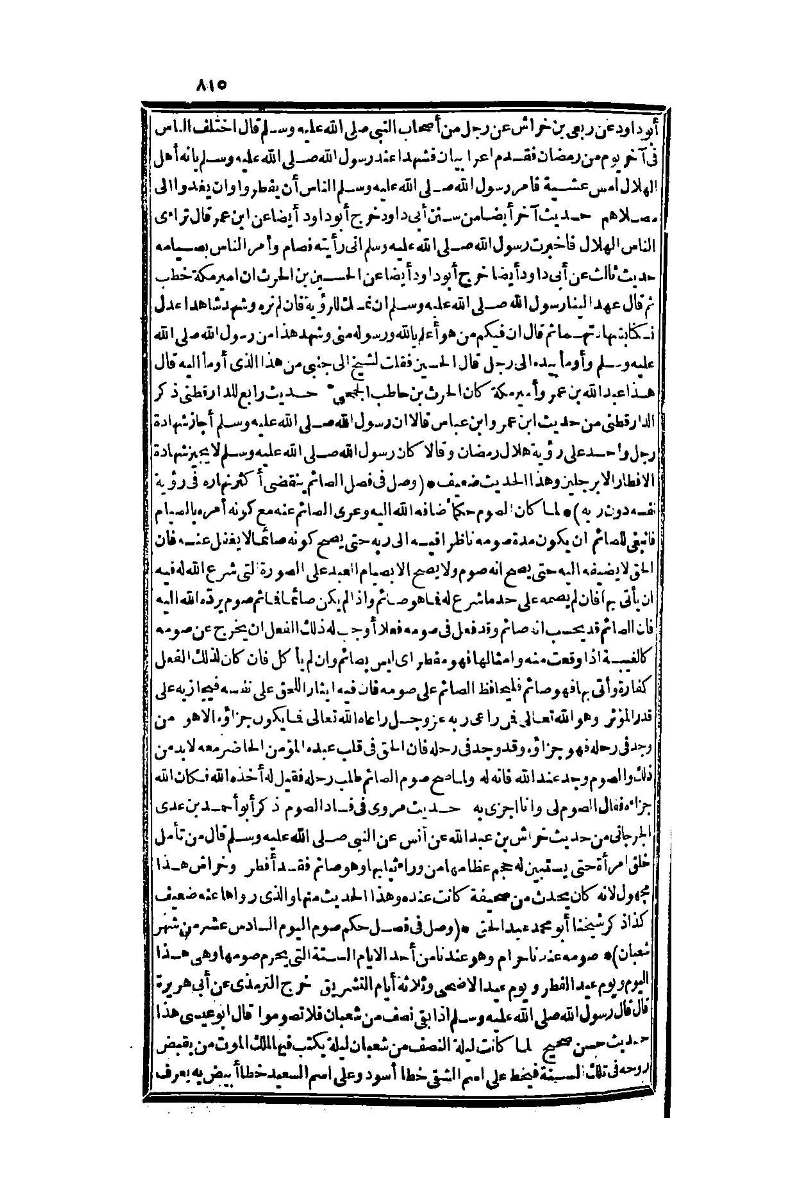 ٨١٥
أبو داود عن ربعي بن خراش عن رجل من أصحاب النبي صلى الله عليه وسلم قال اختلف الناس
في آخر يوم من رمضان فقدم اعرابيان فشهدا عند رسول الله صلى الله عليه وسلم بانه أهل
الهلال أمس عشية فامر رسول الله صلى الله عليه وسلم الناس أن يفطروا وان يغدوا الى
مصلاهم حديث آخر أيضا من سنن أبى داود خرج أبو داود أيضا عن ابن عمر قال تراءى
الناس الهلال فأخبرت رسول الله صلى الله عليه وسلم انى رأيته فصام وأمر الناس بصيامه
حديث ثالث عن أبى داود أيضا خرج أبو داود أيضا عن الحسين بن الحرث ان امير مكة خطب
ثم قال عهد الينا رسول الله صلى الله عليه وسلم ان ننسك للرؤية فان لم نره وشهد شاهدا عدل
نسكنا بشهادتهما ثم قال ان فيكم من هو أعلم بالله ورسوله منى وشهد هذا من رسول الله صلى الله
عليه وسلم وأومأ بيده الى رجل قال الحسين فقلت لشيخ الى جنبي من هذا الذى أومأ اليه قال
هذا عبد الله بن عمر وأمير مكة كان الحرث بن حاطب الجمحى حديث رابع للدارقطنى ذكر
الدارقطنى من حديث ابن عمر وابن عباس قالا ان رسول الله صلى الله عليه وسلم أجاز شهادة
رجل واحد على رؤية هلال رمضان وقالا كان رسول الله صلى الله عليه وسلم لا يجيز شهادة
الافطار الا برجلين وهذا الحديث ضعيف * (وصل فى فصل الصائم ينقضى أكثر نهاره فى رؤية
نفسه دون ربه) * لما كان الصوم حكما أضافه الله اليه وعرى الصائم عنه مع كونه أمره بالصيام
فانبغى للصائم ان يكون مدة صومه ناظرا فيه الى ربه حتى يصح كونه صائما لا يغفل عنه فان
الحق لا يضيفه اليه حتى يصح انه صوم ولا يصح الا بصيام العبد على الصورة التى شرع الله له فيه
ان يأتى بها فان لم يصمه على حد ما شرع له فما هو صائم واذا لم يكن صائما فما ثم صوم يرده الله اليه
فان الصائم قد يحسب انه صائم وقد فعل فى صومه فعلا أوجب له ذلك الفعل ان يخرج عن صومه
كالغيبة اذا وقعت منه وامثالها فهو مفطر اى ليس بصائم وان لم يأ كل فان كان لذلك الفعل
كفارة وأتى بها فهو صائم فليحافظ الصائم على صومه فان فيه ايثار الحق على نفسه فيجازيه على
قدر المؤثر وهو الله تعالى فمن راعى ربه عز وجل راعاه الله تعالى فما يكون جزاؤه الا هو من
وجد فى رحله فهو جزاؤه وقد وجد فى رحله فان الحق فى قلب عبده المؤمن الحاضر معه لا بد من
ذلك والصوم وجد عند الله فانه له ولما صح صوم الصائم طلب رحله فقيل له أخذه الله فكان الله
جزاءه فقال الصوم لى وانا اجزى به حديث مروى فى فساد الصوم ذكر أبو أحمد بن عدى
الجرجانى من حديث خراش بن عبد الله عن أنس عن النبى صلى الله عليه وسلم قال من تأمل
خلق امرأة حتى يستبين له حجم عظامها من وراء ثيابها وهو صائم فقد أفطر وخراش هذا
مجهول لانه كان يحدث من صحيفة كانت عنده وهذا الحديث منها والذى رواها عنه ضعيف
كذا ذكر شيخنا أبو محمد عبد الحق * (وصل فى فصل حكم صوم اليوم السادس عشر من شهر
شعبان) * صومه عندنا حرام وهو عندنا من أحد الايام الستة التى يحرم صومها وهى هذا
اليوم ويوم عيد الفطر ويوم عيد الاضحى وثلاثة أيام التشريق خرج الترمذى عن أبى هريرة
قال قال رسول الله صلى الله عليه وسلم اذا بقى نصف من شعبان فلا تصوموا قال ابو عيسى هذا
حديث حسن صحيح لما كانت ليلة النصف من شعبان ليلة يكتب فيها الملك الموت من يقبض
روحه فى تلك السنة فيخط على اسم الشقى خطا أسود وعلى اسم السعيد خطا أبيض به يعرف